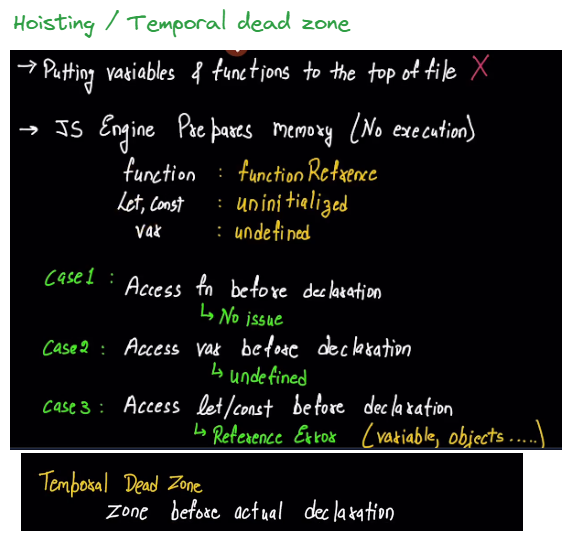 Hoisting / Temporal dead zone
→ Putting variables & functions to the top of file X
→ JS Engine Prepares memory (No execution)
function : function Refrence
Let, Const : uninitialized
var : undefined
Case 1 : Access fn before declaration
↳ No issue
Case 2 : Access var before declaration
↳ undefined
Case 3 : Access let/const before declaration
↳ Reference Error (variable, objects .....)
Temporal Dead Zone
Zone before actual declaration